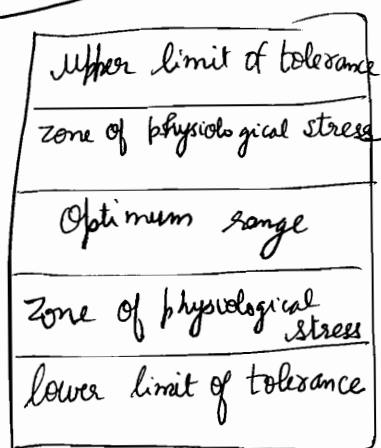 Upper limit of tolerance
zone of physiological stress
Optimum range
Zone of physiological
stress
lower limit of tolerance